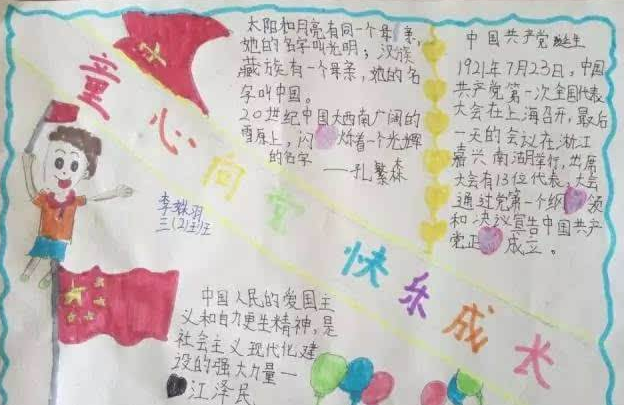 童心向党
快乐成长
太阳和月亮有同一个母亲,
她的名字叫光明;汉族
藏族有一个母亲,她的名
字叫中国。
20世纪中国大西南广阔的
雪原上,闪烁着一个光辉
的名字
——孔繁森
中国共产党诞生
1921年7月23日,中国
共产党第一次全国代表
大会在上海召开,最后
一天的会议在浙江
嘉兴南湖举行,出席
大会有13位代表,大会
通过党第一个纲领
和决议宣告中国共产
党正 成立。
三(2)班
中国人民的爱国主
义和自力更生精神,是
社会主义现代化建
设的强大力量—
江泽民